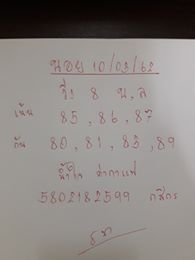 นอย 10/03/62
วิ่ง 8 บ,ล
เน้น 85, 86, 87
กัน 80, 81, 83, 89
น้ำใจ ค่ากาแฟ
5802182599 กสิกร